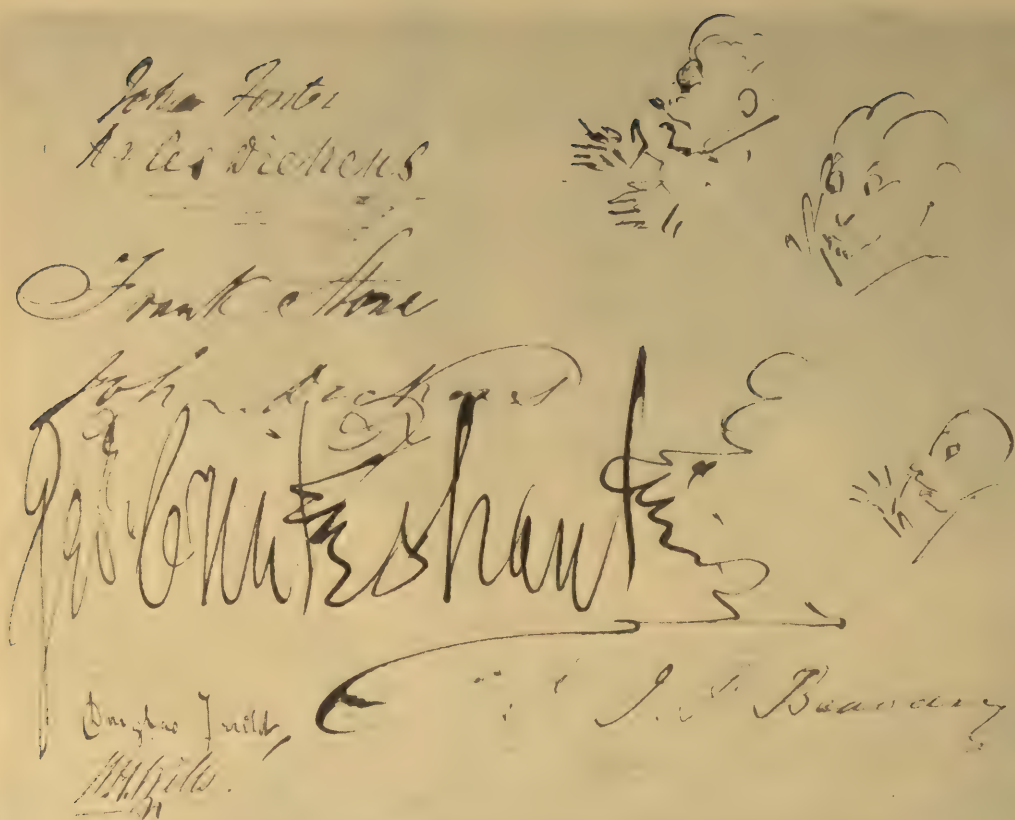 John Forster
Charles Dickens
Frank Stone
John Dickens
Geo Cruikshank
Douglas Jerrold